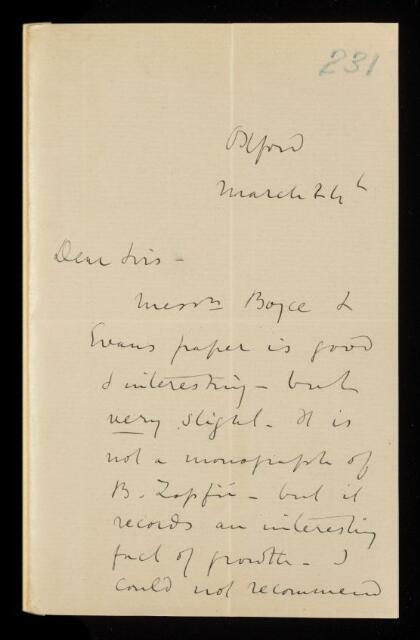 231
Oxford
March 24th
Dear Sirs -
Messrs Boyce &
Evans paper is good
& interesting - but
very slight. It is
not a monograph of
B. Zopfii - but it
records an interesting
fact of growth - I
could not recommend